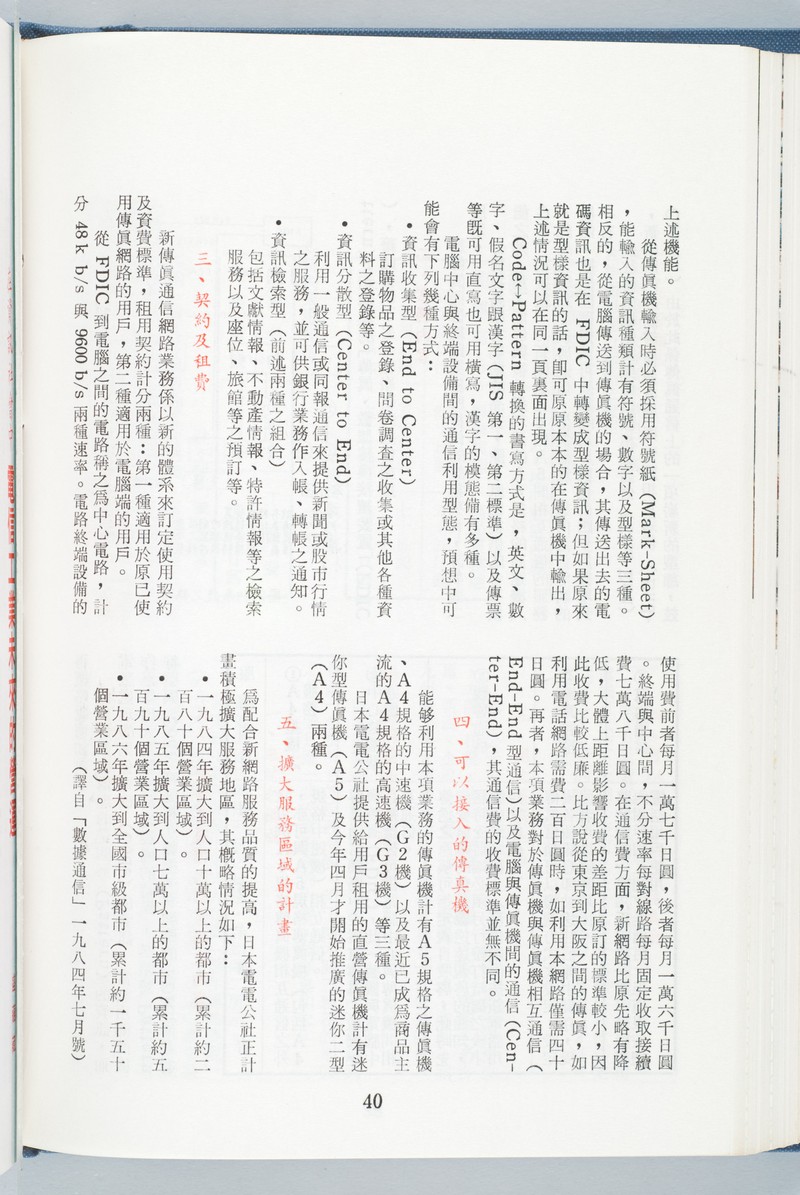 上述機能。
從傳眞機輸入時必須採用符號紙（Mark-Sheet）
，能輸入的資訊種類計有符號、數字以及型樣等三種。
相反的，從電腦傳送到傳眞機的場合，其傳送出去的電
碼資訊也是在 FDIC 中轉變成型樣資訊；但如果原來
就是型樣資訊的話，卽可原原本本的在傳眞機中輸出，
上述情況可以在同一頁裏面出現。
Code↔Pattern 轉換的書寫方式是，英文、數
字、假名文字跟漢字（JIS 第一、第二標準）以及傳票
等旣可用直寫也可用橫寫，漢字的模態備有多種。
電腦中心與終端設備間的通信利用型態，預想中可
能會有下列幾種方式：
•資訊收集型（End to Center）
訂購物品之登錄、問卷調查之收集或其他各種資
料之登錄等。
•資訊分散型（Center to End）
利用一般通信或同報通信來提供新聞或股市行情
之服務，並可供銀行業務作入帳、轉帳之通知。
•資訊檢索型（前述兩種之組合）
包括文獻情報、不動產情報、特許情報等之檢索
服務以及座位、旅館等之預訂等。
三、契約及租費
新傳眞通信網路業務係以新的體系來訂定使用契約
及資費標準，租用契約計分兩種：第一種適用於原已使
用傳眞網路的用戶，第二種適用於電腦端的用戶。
從 FDIC 到電腦之間的電路稱之爲中心電路，計
分 48k b/s 與 9600 b/s 兩種速率。電路終端設備的
使用費前者每月一萬七千日圓，後者每月一萬六千日圓
。終端與中心間，不分速率每對線路每月固定收取接續
費七萬八千日圓。在通信費方面，新網路比原先略有降
低，大體上距離影響收費的差距比原訂的標準較小，因
此收費比較低廉。比方說從東京到大阪之間的傳眞，如
利用電話網路需費二百日圓時，如利用本網路僅需四十
日圓。再者，本項業務對於傳眞機與傳眞機相互通信（
End-End 型通信）以及電腦與傳眞機間的通信（Cen-
ter-End），其通信費的收費標準並無不同。
四、可以接入的傳真機
能够利用本項業務的傳眞機計有A5規格之傳眞機
、A4規格的中速機（G2機）以及最近已成爲商品主
流的A4規格的高速機（G3機）等三種。
日本電電公社提供給用戶租用的直營傳眞機計有迷
你型傳眞機（A5）及今年四月才開始推廣的迷你二型
（A4）兩種。
五、擴大服務區域的計畫
爲配合新網路服務品質的提高，日本電電公社正計
畫積極擴大服務地區，其概略情況如下：
•一九八四年擴大到人口十萬以上的都市（累計約二
百八十個營業區域）。
•一九八五年擴大到人口七萬以上的都市（累計約五
百九十個營業區域）。
•一九八六年擴大到全國市級都市（累計約一千五十
個營業區域）。
（譯自「數據通信」一九八四年七月號）
40